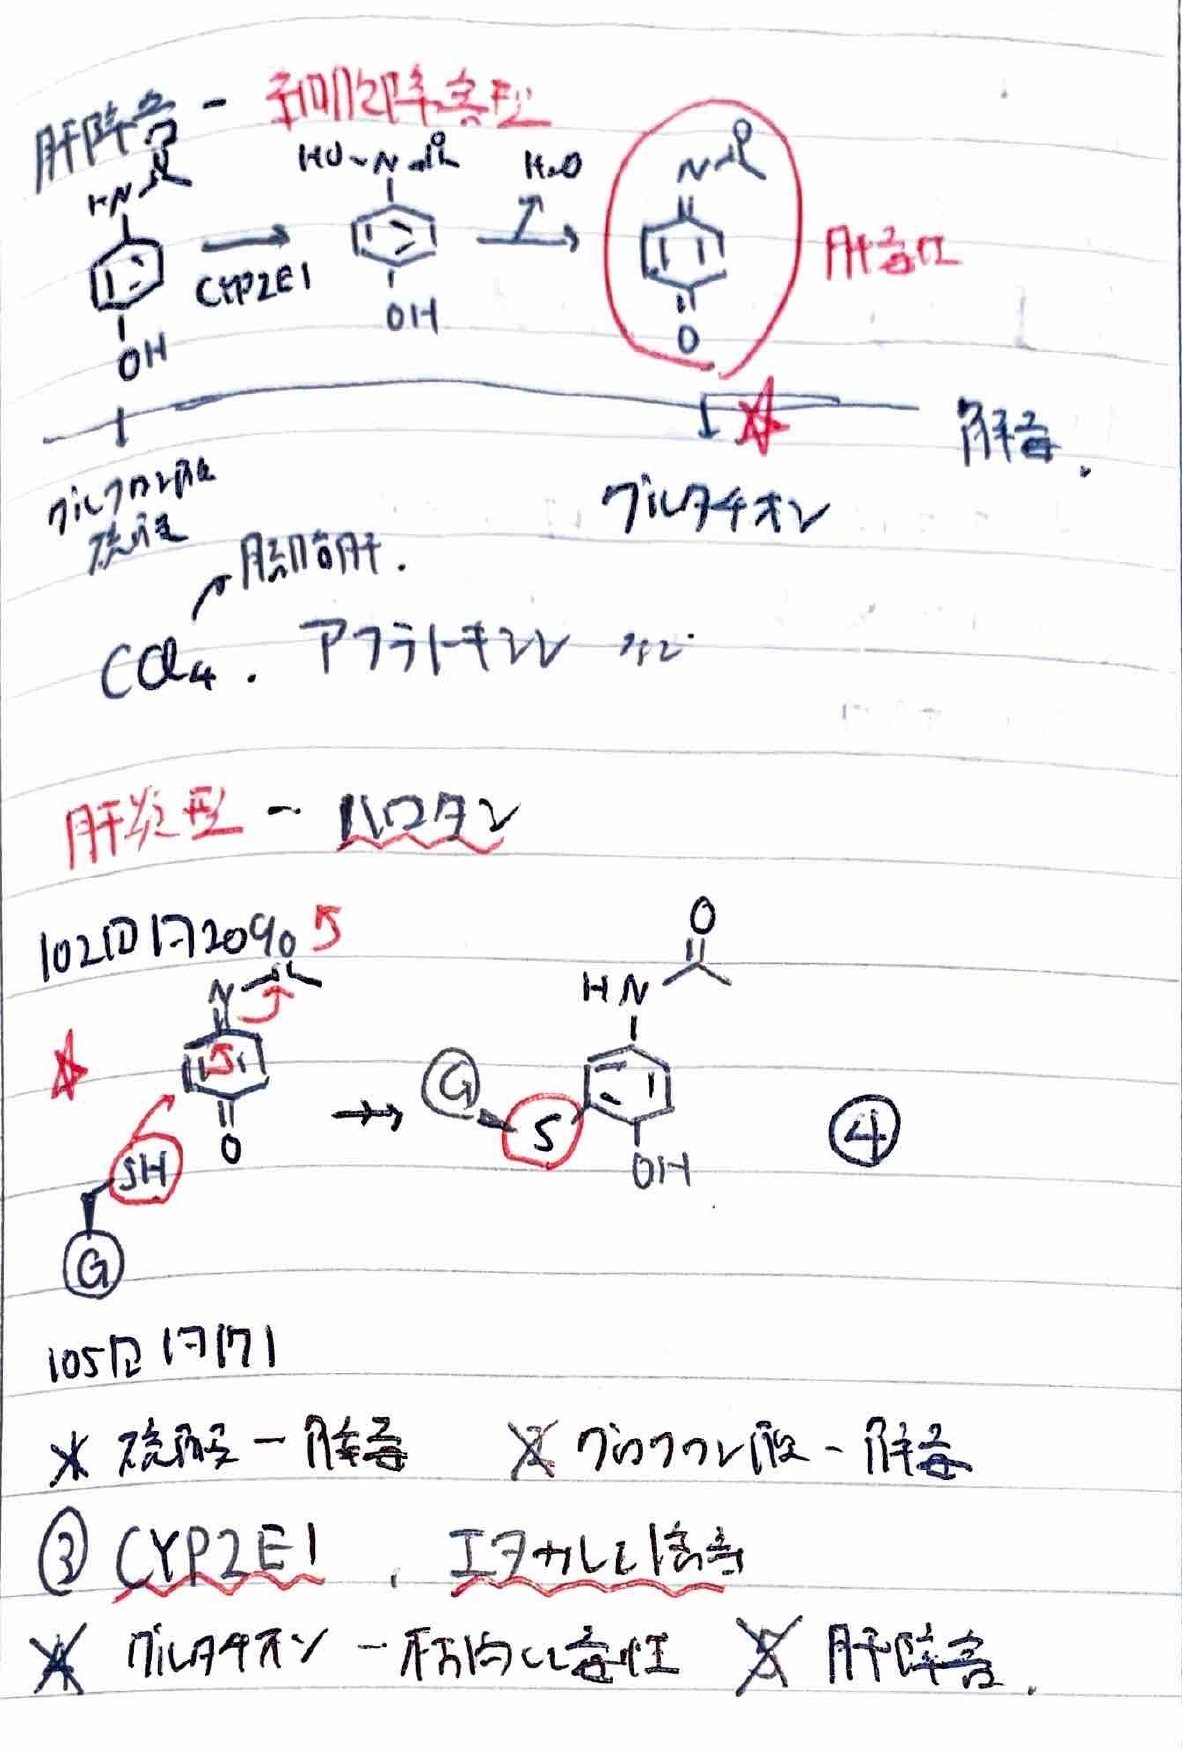 肝障害 - 細胞障害型
HN O HO-N O H₂O N O
CYP2E1 肝毒性
OH OH O
解毒.
グルクロン酸 グルタチオン
硫酸
脂肪肝.
CCl₄. アフラトキシン など
肝炎型 - ハロタン
102回問209
N O HN O
G S ④
SH O OH
G
105回問171
1 硫酸 - 解毒 2 グルクロン酸 - 解毒
③ CYP2E1 , エタノール
4 グルタチオン - 枯渇 毒性 5 肝障害.